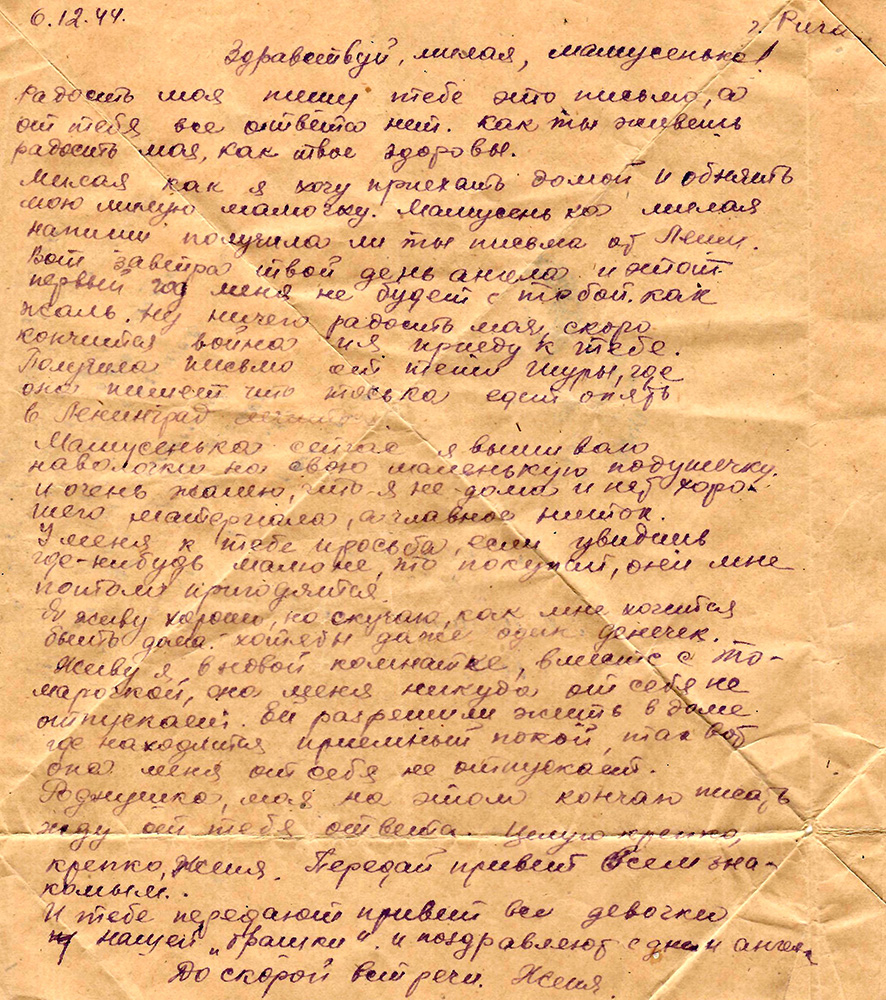 6.12.44.
г. Рига
Здравствуй, милая, мамусенька!
Радость моя пишу тебе это письмо, а
от тебя все ответа нет. Как ты живешь
радость моя, как твое здоровье.
Милая как я хочу приехать домой и обнять
мою милую мамочку. Мамусенька милая
напиши получила ли ты письма от Лени.
Вот завтра твой день ангела и этот
первый год меня не будет с тобой, как
жаль. Ну ничего радость моя, скоро
кончится война и я приеду к тебе.
Получила письмо от тети Шуры, где
она пишет что тоська едет опять
в Ленинград
Мамусенька сейчас я вышиваю
наволочки на свою маленькую подушечку.
и очень жалею, что я не дома и нет хоро-
шего материала, а главное ниток.
У меня к тебе просьба, если увидишь
где-нибудь мамоне, то покупай, они мне
потом пригодятся.
Я живу хорошо, но скучаю, как мне хочется
быть дома. хотябы даже один денечек.
Живу я в новой комнатке, вместе с То-
марочкой, она меня никуда от себя не
отпускает. Ей разрешили жить в доме
где находится приемный покой, так вот
она меня от себя не отпускает.
Роднушка, моя на этом кончаю писать
жду от тебя ответа. Целую крепко,
крепко, Женя. Передай привет всем зна-
комым.
И тебе передают привет все девочки
нашей „брашки“. и поздравляют с днем ангела
До скорой встречи. Женя.